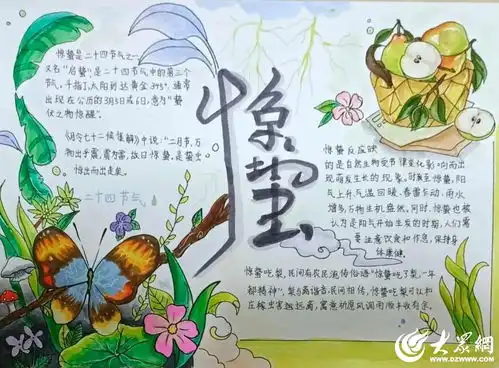 惊蛰是二十四节气之一
又名“启蛰”是二十四节气中的第三个
节气,干指,太阳到达黄金345°通常
出现在公历的3月5日或6日,意为“蛰
伏之物惊醒”
《月令七十二候集解》中说:“二月节,万
物出乎震,震为雷,故曰惊蛰,是蛰虫
惊出而出走矣。
二十四节气
惊蛰
惊蛰反应映
的是自然生物受节律变化影向而出
现萌发生长的现象,时至惊蛰,阳
气上升气温回暖、春雷乍动、雨水
增多,万物生机盎然,同时,惊蛰也被
认为是阳气开始生发的时期,人们需
要注意饮食和作息,保持身
体康健,
惊蛰吃梨,民间有农民流传俗语“惊蛰吃了梨,一年
都精神”,梨与离谐音,民间相传,惊蛰吃梨可以和
庄稼虫害远远离,寓意祈愿风调雨顺丰收有余,
大众網
WWW.DZWWW.COM